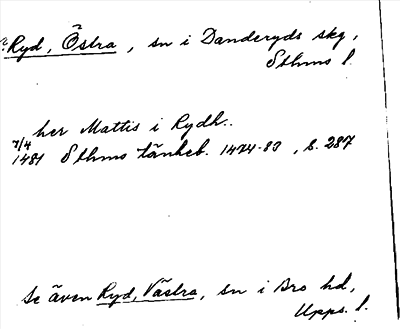 Ryd, Östra, sn i Danderyds skg,
Sthms l.
her Mattis i Rydh..
7/4
1481 Sthms tänkeb. 1474-83, s. 287
Se även Ryd, Västra, sn i Bro hd,
Upps. l.